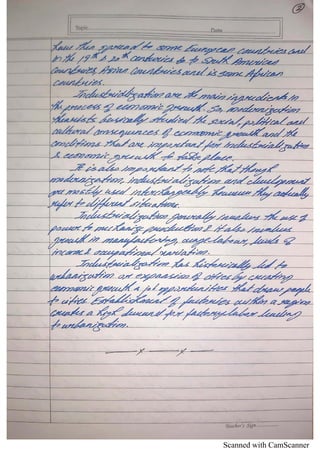 ③
Topic
Date
have then spread to some European countries and
in the 19th & 20th centuries & to South American
Countries, Asian Countries and is some African
countries.
Industrialization are the main ingredients in
the process of economic growth. So modernization
theorists basically studied the social, political and
cultural consequences of economic growth and the
conditions that are important for industrialization
& economic growth to take place.
It is also important to note that though
modernization, industrialization and development
are mostly used interchangeably however they actually
refer to different situations.
Industrialization generally involves the use of
power to mechanize production & it also involves
growth in manufacturing, wage labour, levels of
income & occupational variation.
Industrialization has historically led to
urbanization an expansion of cities by creating
economic growth & job opportunities that draw people
to cities. Establishment of factories within a region
creates a high demand for factory labor leading
to urbanization.
Teacher's Sign
Scanned with CamScanner